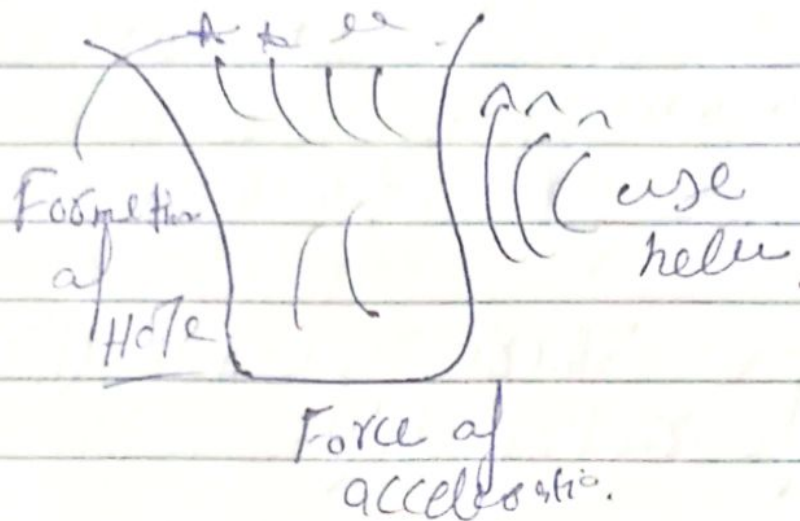 Formethor
of
Hole
use
Force of
acceleratio.